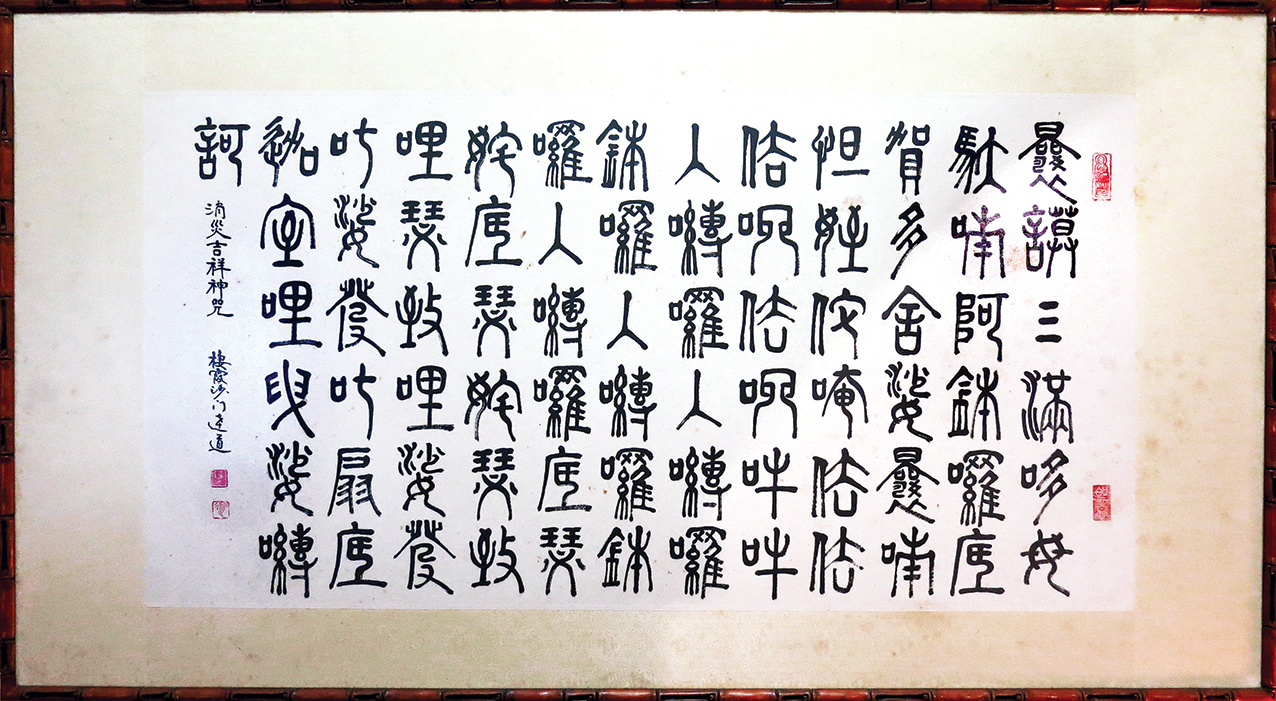 曩謨三滿哆母
馱喃阿鉢囉底
賀多舍娑曩喃
怛姪佗唵佉佉
佉呬佉呬吽吽
入嚩囉入嚩囉
鉢囉入嚩囉鉢
囉入嚩囉底瑟
姹底瑟姹瑟致
哩瑟致哩娑發
吒娑發吒扇底
迦室哩曳娑嚩
訶
消災吉祥神咒 棲霞沙門達道